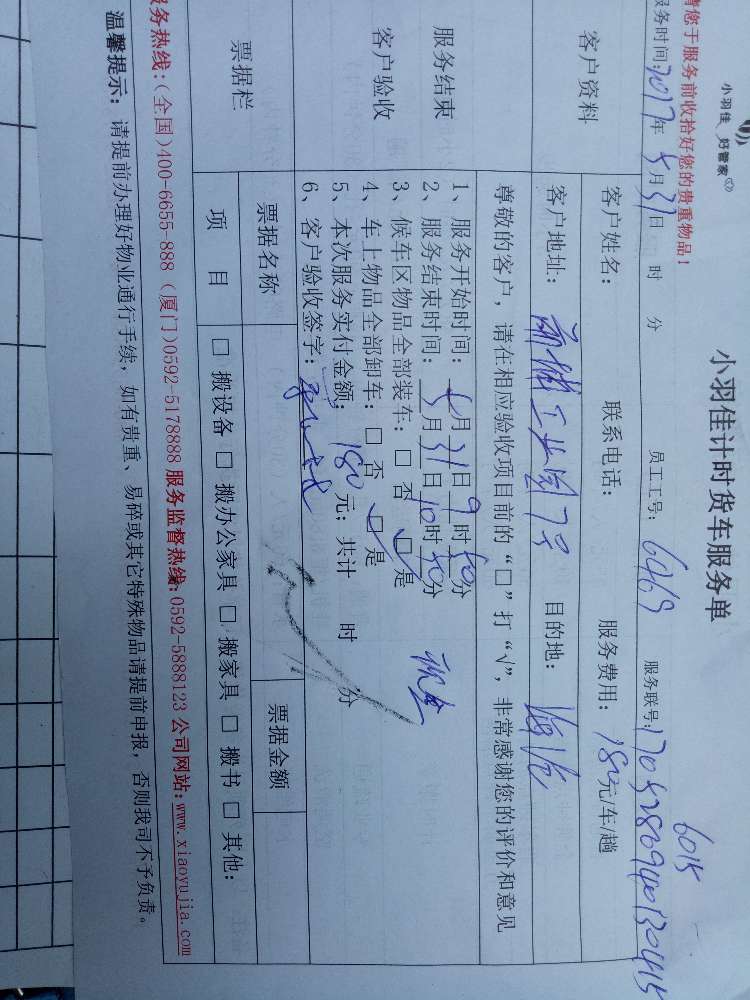 小羽佳 好管家
请您于服务前收拾好您的贵重物品!
小羽佳计时货车服务单
服务时间:2017年5月31日 时 分 员工工号: 6469 服务联号:
6015
客户资料
客户姓名: 联系电话: 服务费用: 180元/车/趟
客户地址: 工业园7号 目的地:
服务结束
客户验收
尊敬的客户,请在相应验收项目前的“□”打“√”,非常感谢您的评价和意见
1、服务开始时间: 5月31日9时 分
2、服务结束时间: 5月31日10时 分
3、候车区物品全部装车: □ 否 □ 是
4、车上物品全部卸车: □ 否 □ 是
5、本次服务实付金额: 180元; 共计 时 分
6、客户验收签字:
票据栏
票据名称 票据金额
项 目 □ 搬设备 □ 搬办公家具 □ 搬家具 □ 搬书 □ 其他:
服务热线:(全国)400-6655-888 (厦门)0592-5178888 服务监督热线:0592-5888123 公司网站:www.xiaoyujia.com
温馨提示: 请提前办理好物业通行手续, 如有贵重、易碎或其它特殊物品请提前申报, 否则我司不予负责。